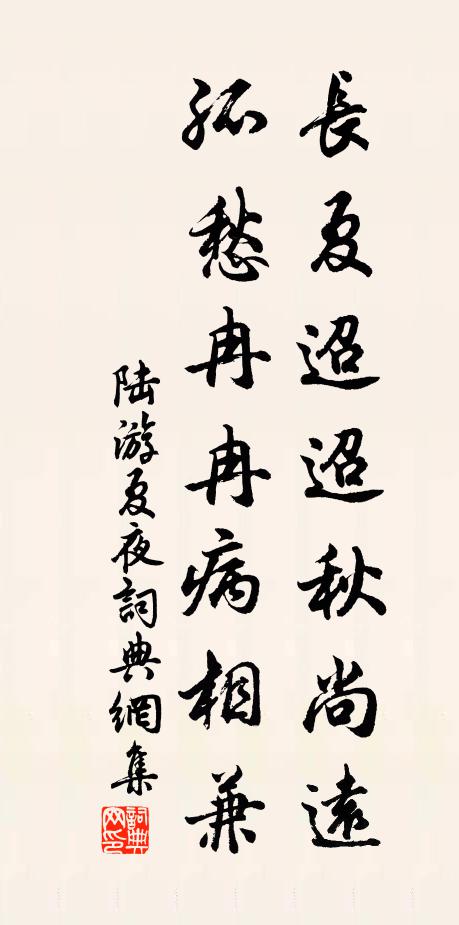 長夏迢迢秋尚遠
孤愁冉冉病相兼
陸游夏夜詞典網集
詞典
网印